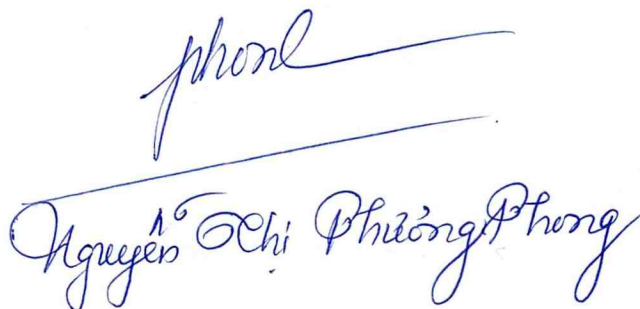 phong
Nguyễn Thị Phương Phong